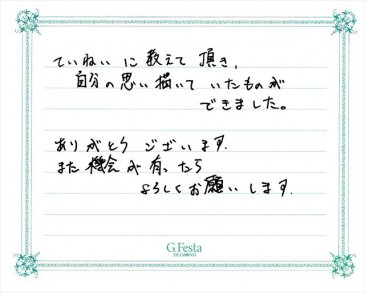 ていねいに教えて頂き、
自分の思い描いていたものが
できました。
ありがとうございます.
また機会が有ったら
よろしくお願いします.
G.Festa
DIAMOND